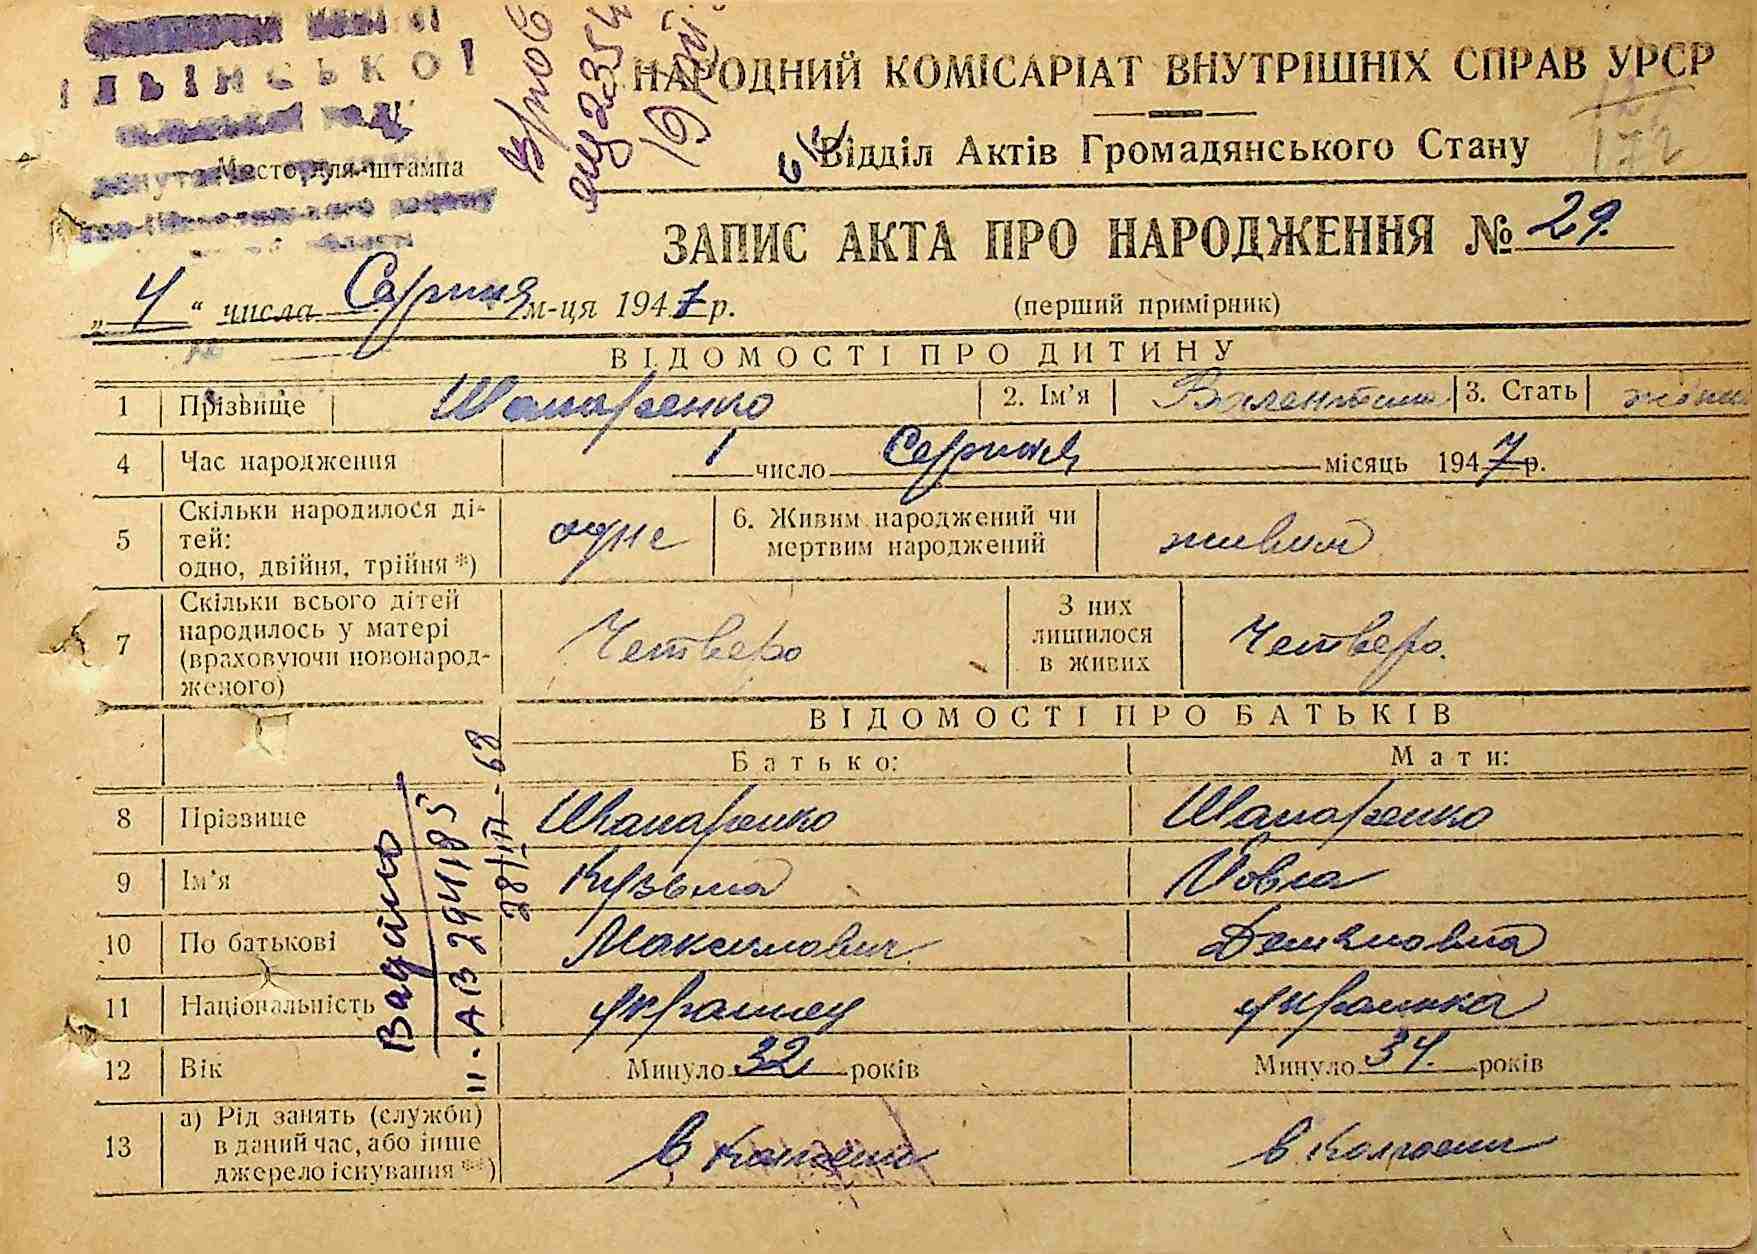 ІЛЬІНСЬКОЇ
НАРОДНИЙ КОМІСАРІАТ ВНУТРІШНІХ СПРАВ УРСР
172
Відділ Актів Громадянського Стану
Место для штампа
ЗАПИС АКТА ПРО НАРОДЖЕННЯ № 29.
„4" числа Серпня м-ця 1947 р.
(перший примірник)
ВІДОМОСТІ ПРО ДИТИНУ
1 Прізвище Шапаренко 2. Ім'я Валентина 3. Стать
4 Час народження 1 число Серпня місяць 1947 р.
5 Скільки народилося ді-
тей:
одно, двійня, трійня *) одне 6. Живим народжений чи
мертвим народжений живим
7 Скільки всього дітей
народилось у матері
(враховуючи новонарод-
женого) Четверо З них
лишилося
в живих Четверо.
ВІДОМОСТІ ПРО БАТЬКІВ
Батько: Мати:
8 Прізвище Шапаренко Шапаренко
9 Ім'я Кузьма Йовга
10 По батькові Максимович Демяновна
11 Національність українец українка
12 Вік Минуло 32 років Минуло 34. років
13 а) Рід занять (служби)
в даний час, або інше
джерело існування **) в колгоспи в колгоспи
Видано
II-АВ 294185
28/III-68